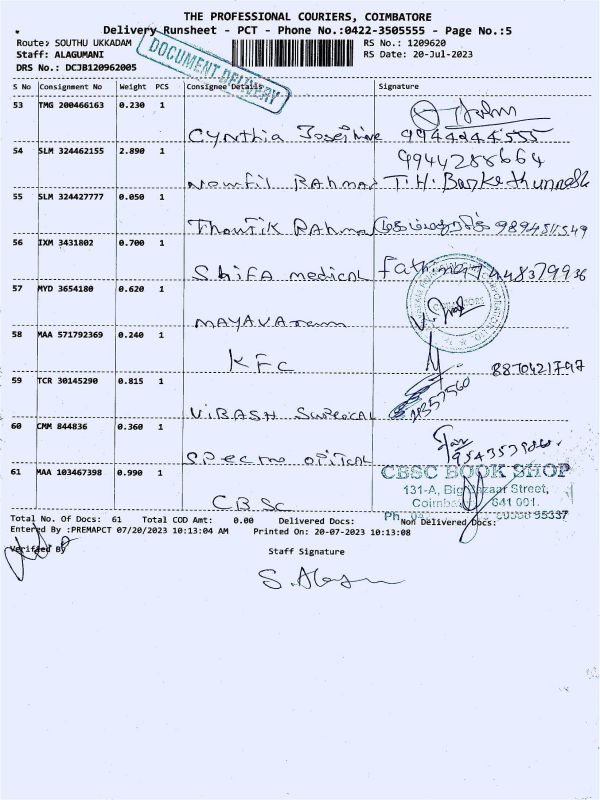 THE PROFESSIONAL COURIERS, COIMBATORE
Delivery Runsheet - PCT - Phone No.:0422-3505555 - Page No.:5
Route: SOUTHU UKKADAM
RS No.: 1209620
Staff: ALAGUMANI
RS Date: 20-Jul-2023
DRS No.: DCJB120962005
DOCUMENT DELIVERY
S No Consignment No Weight PCS Consignee Details Signature
53 TMG 200466163 0.230 1
Cynthia Josephine 9944244555
54 SLM 324462155 2.890 1
9944288664
Rahmad T.H.
55 SLM 324427777 0.050 1
Thoufik Rahma
56 IXM 3431802 0.700 1
Shifa medical Fathima
57 MYD 3654180 0.620 1
MAYAVaram
58 MAA 571792369 0.240 1
KFC
8870421797
59 TCR 30145290 0.815 1
ViBASH Surgical
60 CMM 844836 0.360 1
61 MAA 103467398 0.990 1
CBSC BOOK SHOP
131-A, Big Bazaar Street,
641 001.
CBSC
Ph
95337
Total No. Of Docs: 61 Total COD Amt: 0.00 Delivered Docs: Non Delivered Docs:
Entered By :PREMAPCT 07/20/2023 10:13:04 AM Printed On: 20-07-2023 10:13:08
Verified By Staff Signature